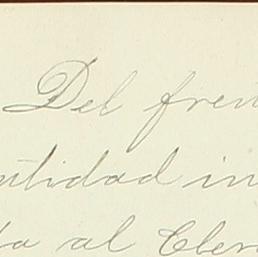 Del fren
ntidad in
ta al Cler